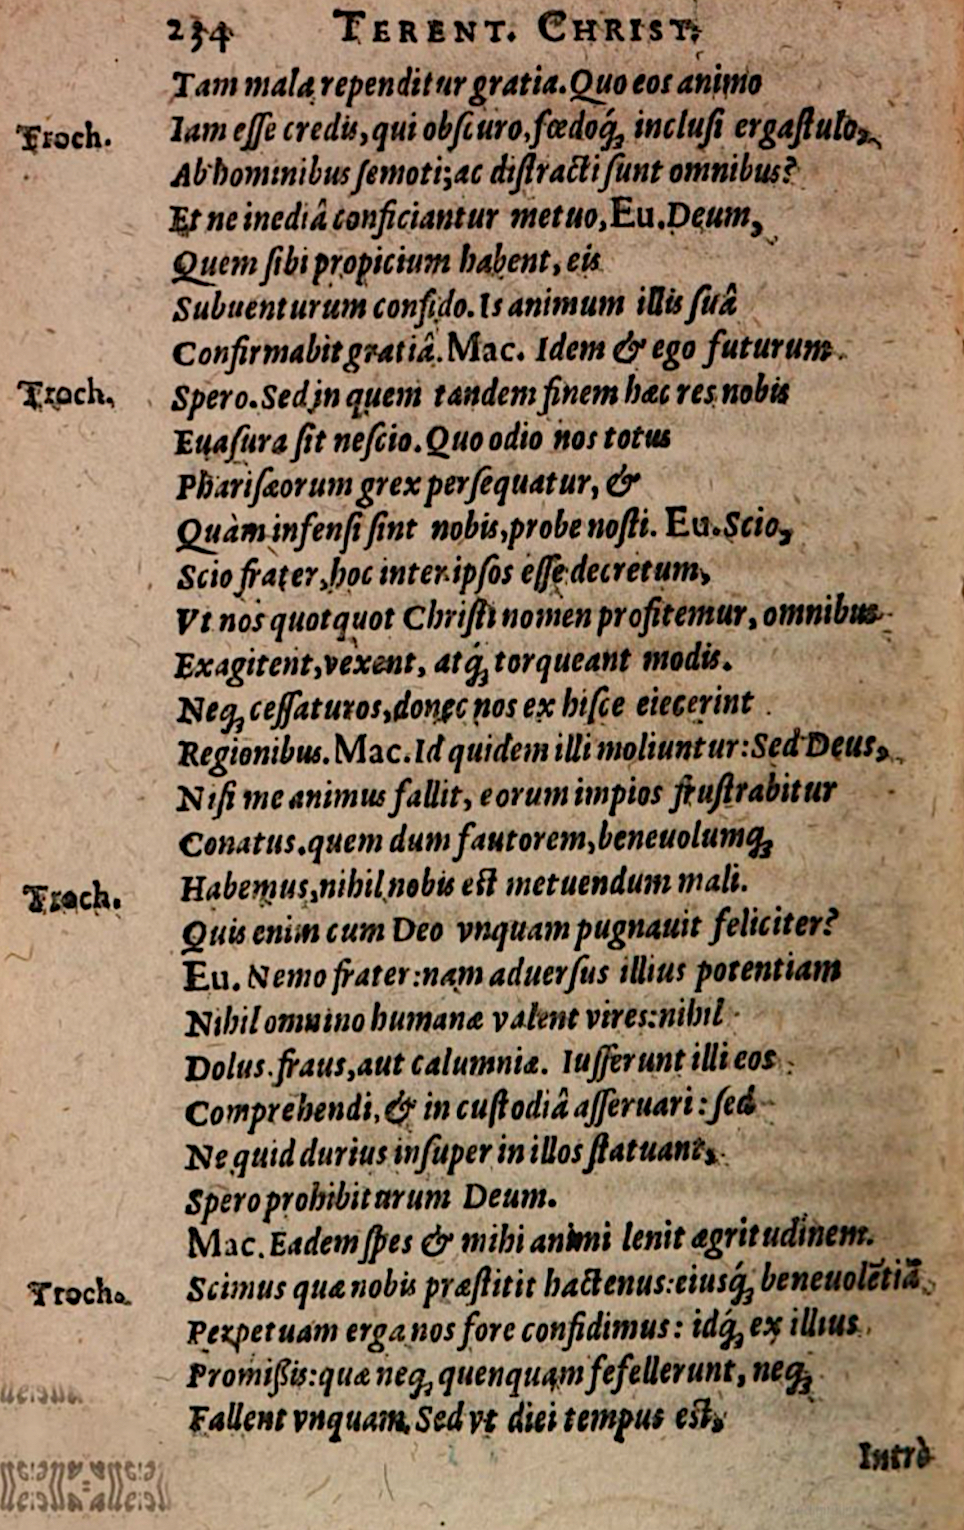 234 TERENT. CHRIST.
Tam mala rependitur gratia. Quo eos animo
Troch. Iam eſſe credis, qui obſcuro, fœdoq́; incluſi ergaſtulo,
Ab hominibus ſemoti; ac diſtracti ſunt omnibus?
Et ne inediâ conficiantur metuo, Eu. Deum,
Quem ſibi propicium habent, eis
Subuenturum confido. Is animum illis ſuâ
Confirmabit gratiâ. Mac. Idem & ego futurum
Troch. Spero. Sed in quem tandem finem hæc res nobis
Euaſura ſit neſcio. Quo odio nos totus
Phariſæorum grex perſequatur, &
Quàm infenſi ſint nobis, probe noſti. Eu. Scio,
Scio frater, hoc inter ipſos eſſe decretum,
Vt nos quotquot Chriſti nomen profitemur, omnibus
Exagitent, vexent, atq́; torqueant modis.
Neq; ceſſaturos, donec nos ex hiſce eiecerint
Regionibus. Mac. Id quidem illi moliuntur: Sed Deus,
Niſi me animus fallit, eorum impios fruſtrabitur
Conatus. quem dum fautorem, beneuolumq;
Troch. Habemus, nihil nobis eſt metuendum mali.
Quis enim cum Deo vnquam pugnauit feliciter?
Eu. Nemo frater: nam aduerſus illius potentiam
Nihil omnino humanæ valent vires: nihil
Dolus. fraus, aut calumniæ. Iuſſerunt illi eos
Comprehendi, & in cuſtodiâ aſſeruari: ſed
Ne quid durius inſuper in illos ſtatuant,
Spero prohibiturum Deum.
Mac. Eadem ſpes & mihi animi lenit ægritudinem.
Troch. Scimus quæ nobis præſtitit hactenus: eiusq́; beneuolẽtiã
Perpetuam erga nos fore confidimus: idq́; ex illius
Promiſsis: quæ neq; quenquam fefellerunt, neq;
Fallent vnquam. Sed vt diei tempus eſt,
Intrò